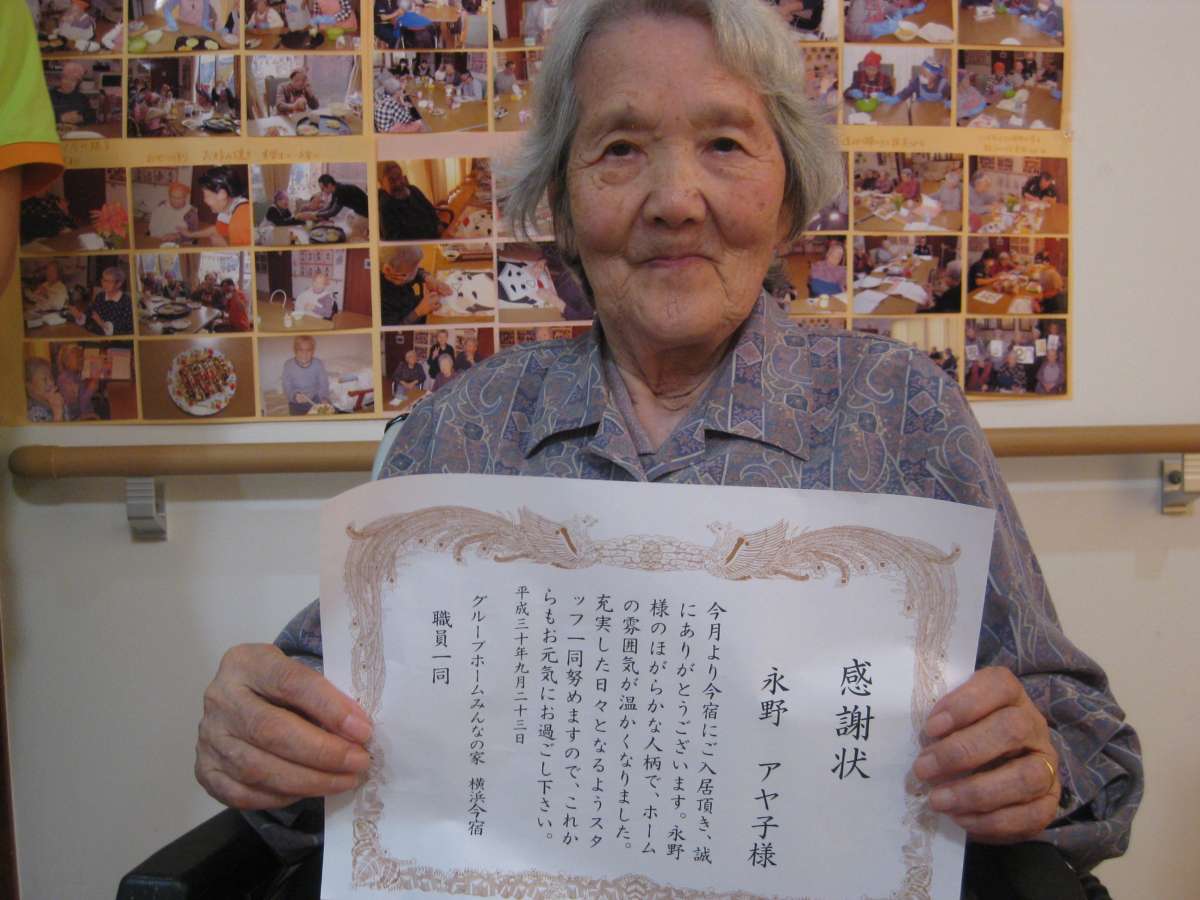 感謝状
永野 アヤ子様
今月より今宿にご入居頂き、誠
にありがとうございます。永野
様のほがらかな人柄で、ホーム
の雰囲気が温かくなりました。
充実した日々となるようスタ
ッフ一同努めますので、これか
らもお元気にお過ごし下さい。
平成三十年九月二十三日
グループホームみんなの家 横浜今宿
職員一同